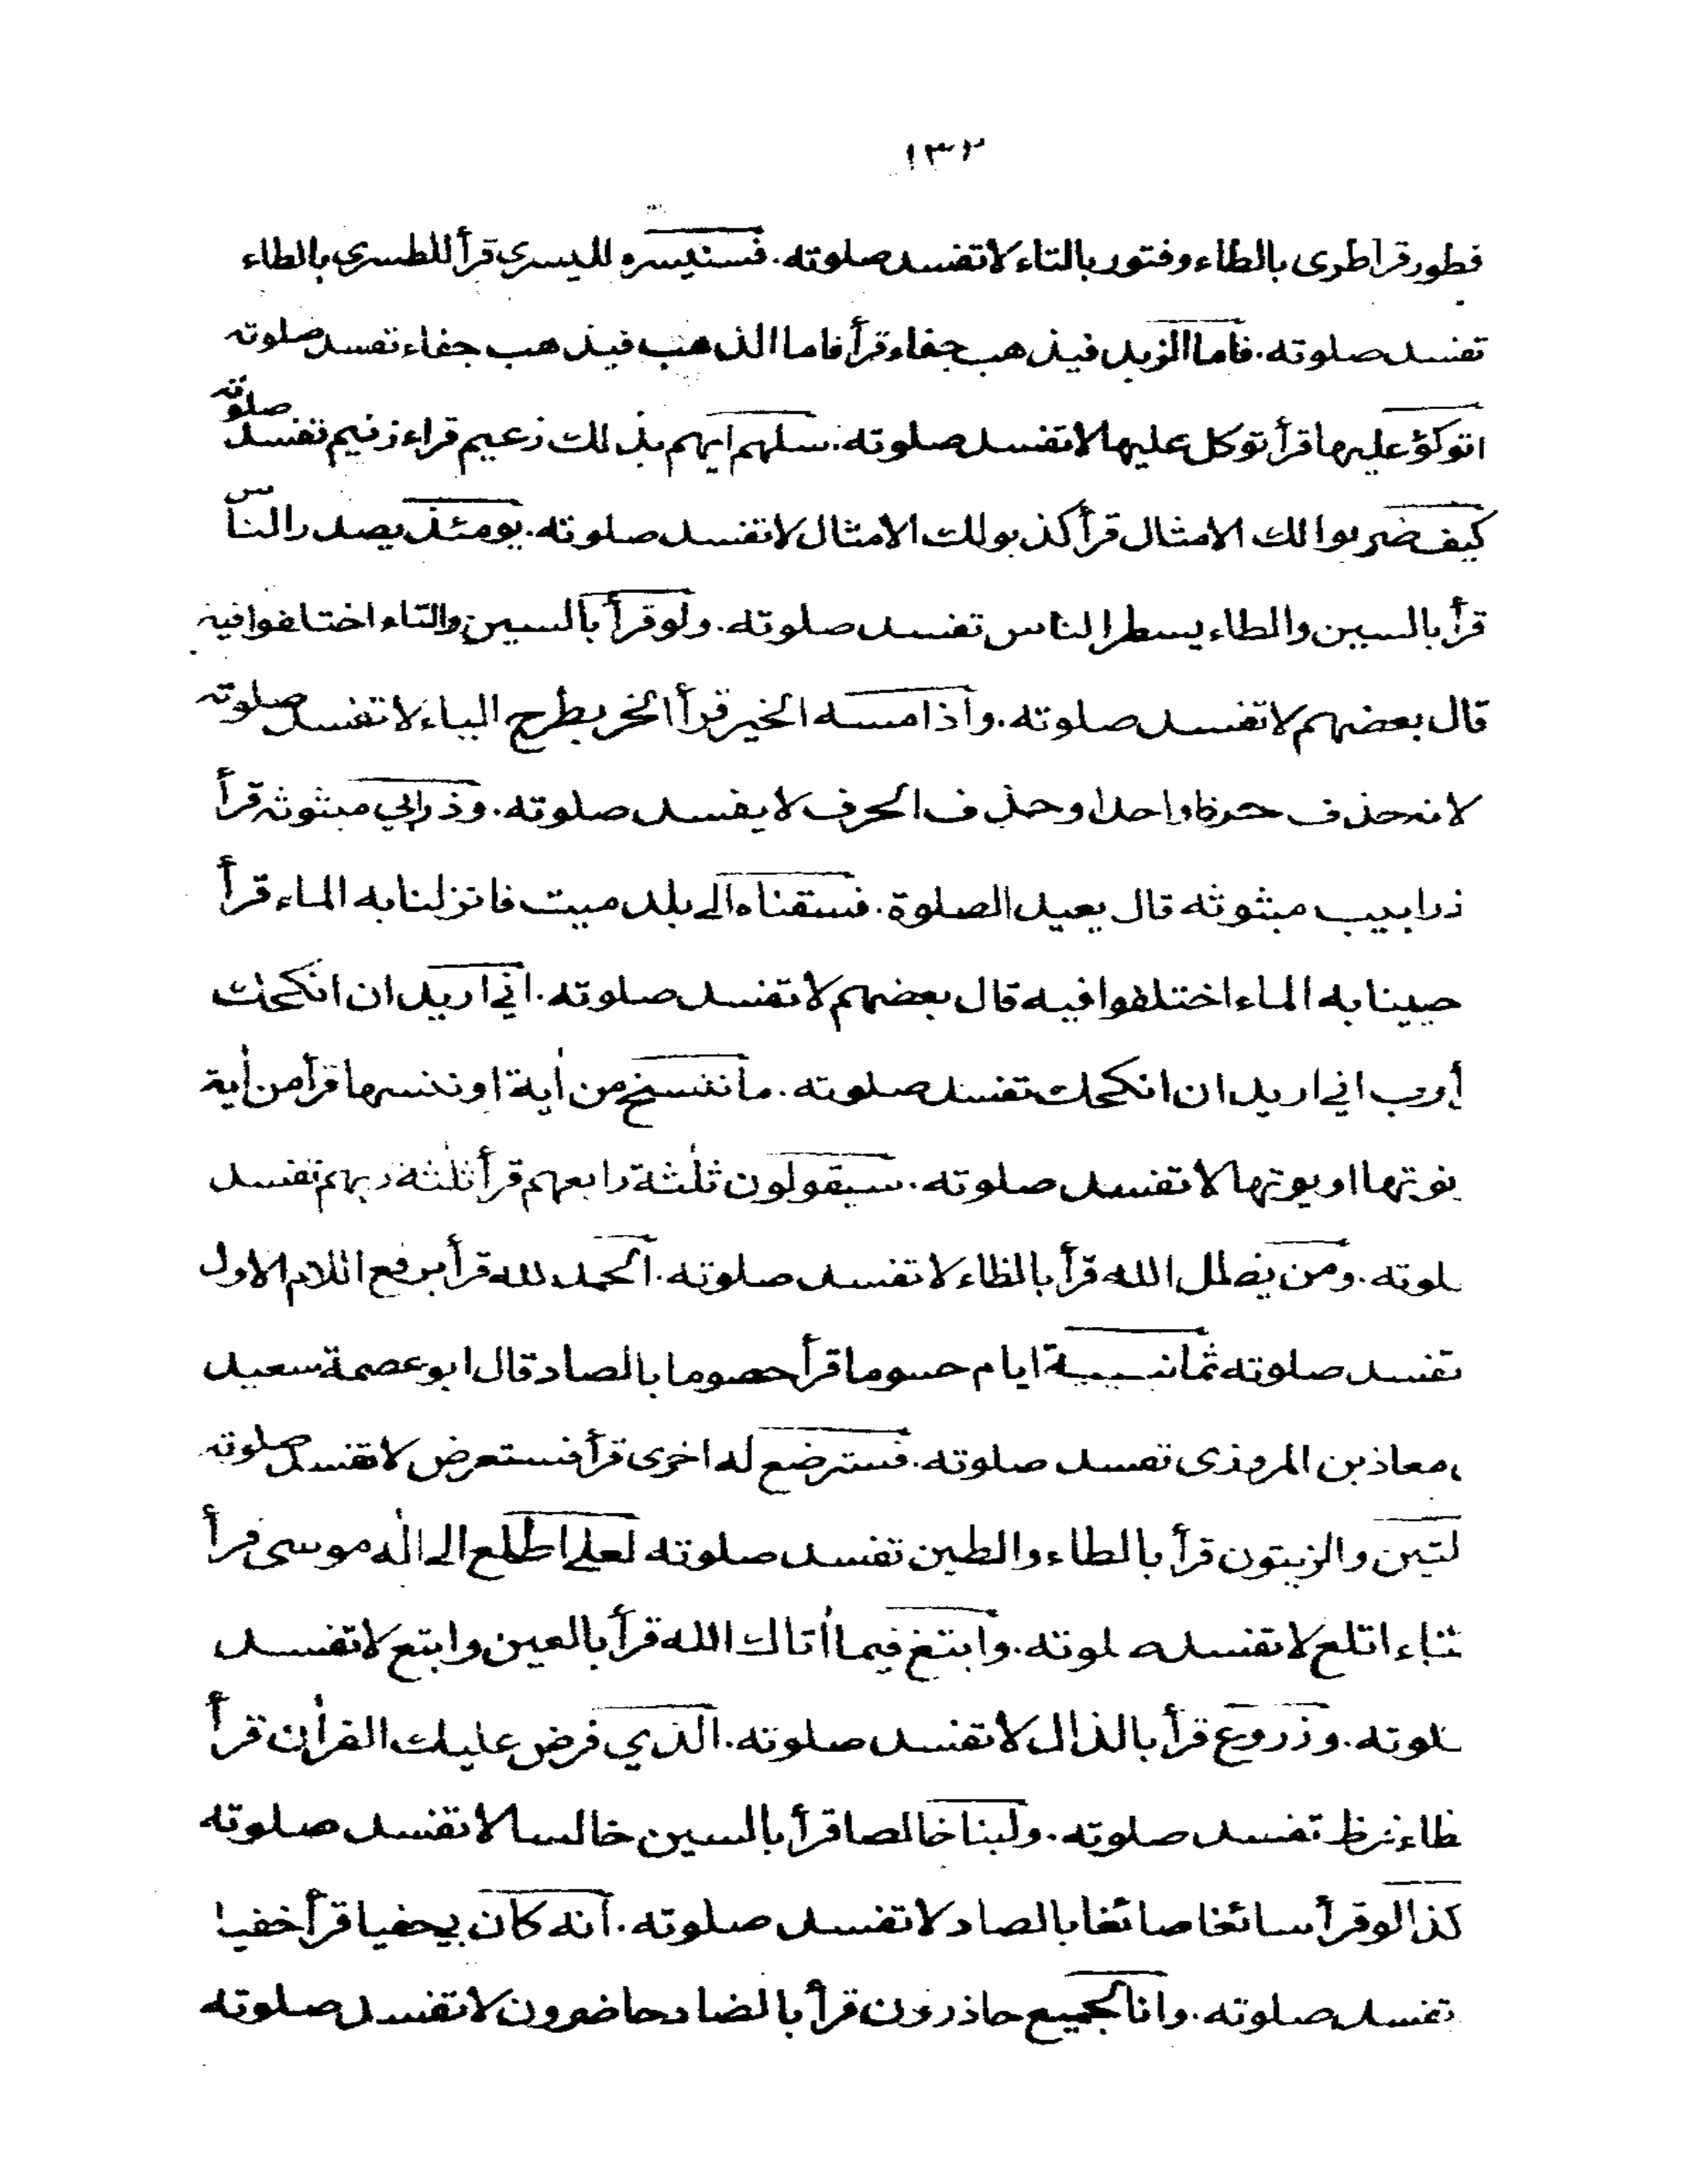 ١٣٢
فطور قرأ طرى بالطاء وفتور بالتاء لا تفسد صلوته. فسنيسره لليسرى قرأ للطسرى بالطاء
تفسد صلوته. فاما الزبد فيذهب جفاء قرأ فاما الذهب فيذهب جفاء تفسد صلوته
اتوكؤ عليها قرأ توكل عليها لا تفسد صلوته. سلهم ايهم بذلك زعيم قراء زنيم تفسد صلوته
كيف ضربوا لك الامثال قرأ كذبو لك الامثال لا تفسد صلوته. يومئذ يصدر الناس
قرأ بالسين والطاء يسطر الناس تفسد صلوته. ولو قرأ بالسين والتاء اختلفوا فيه
قال بعضهم لا تفسد صلوته. واذا مسه الخير قرأ الخر بطرح الياء لا تفسد صلوته
لانه حذف حرفا واحدا وحذف الحرف لا يفسد صلوته. وذرابي مبثوثه قرأ
ذرابيب مبثوثه قال يعيد الصلوة. فسقناه الى بلد ميت فانزلنا به الماء قرأ
حيينا به الماء اختلفوا فيه قال بعضهم لا تفسد صلوته. اني اريد ان انكحك
أرب اني اريد ان انكحك تفسد صلوته. ما ننسخ من أية او ننسها قرأ من أية
نوتها او يوتها لا تفسد صلوته. سيقولون ثلثة رابعهم قرأ ثلثة ربهم تفسد
لوته. ومن يضلل الله قرأ بالظاء لا تفسد صلوته. الحمد لله قرأ برفع اللام الاول
تفسد صلوته ثمانيية ايام حسوما قرأ حصوما بالصاد قال ابو عصمة سعيد
معاذ بن المروزى تفسد صلوته. فسترضع له اخرى قرأ فستعرض لا تفسد صلوته
لتين والزيتون قرأ بالطاء والطين تفسد صلوته لعلي اطلع الى اله موسى قرأ
تاء اتلع لا تفسد صلوته. وابتغ فيما أتاك الله قرأ بالعين وابتع لا تفسد
لوته. وزروع قرأ بالذال لا تفسد صلوته. الذي فرض عليك القرأن قرأ
ظاء فرظ تفسد صلوته. ولبنا خالصا قرأ بالسين خالسا لا تفسد صلوته
كذا لو قرأ سائغا صائغا بالصاد لا تفسد صلوته. انه كان بي حفيا قرأ خفيا
تفسد صلوته. وانا لجميع حاذرون قرأ بالضاد حاضرون لا تفسد صلوته